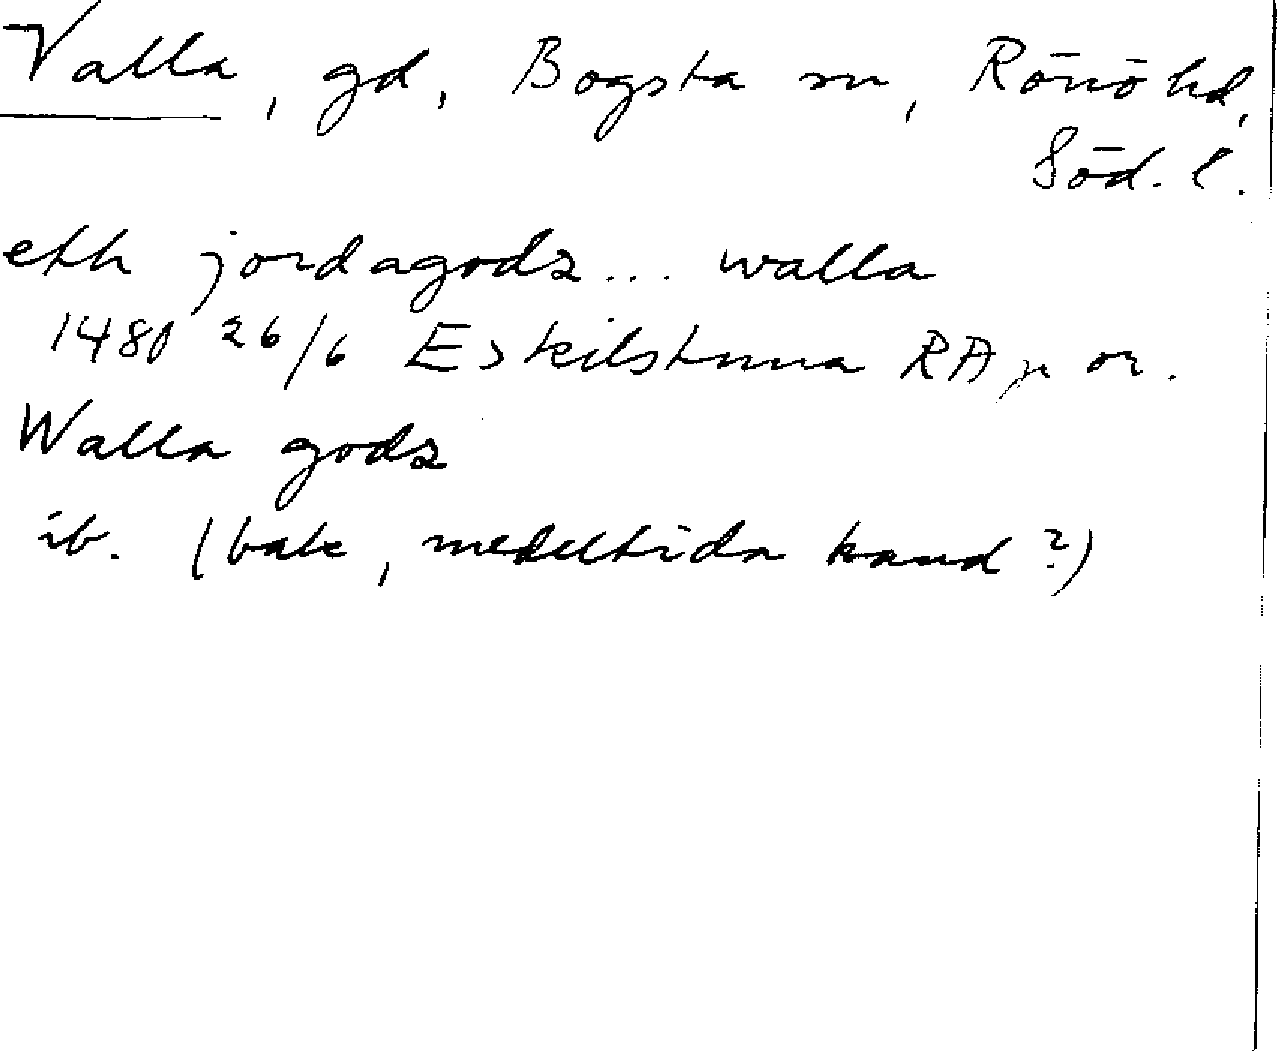 Valla, gd, Bogsta sn, Rönö hd,
Söd. l.
eth jordagodz... walla
1480 26/6 Eskilstuna RA p or.
Walla godz
ib. (bak, medeltida hand?)